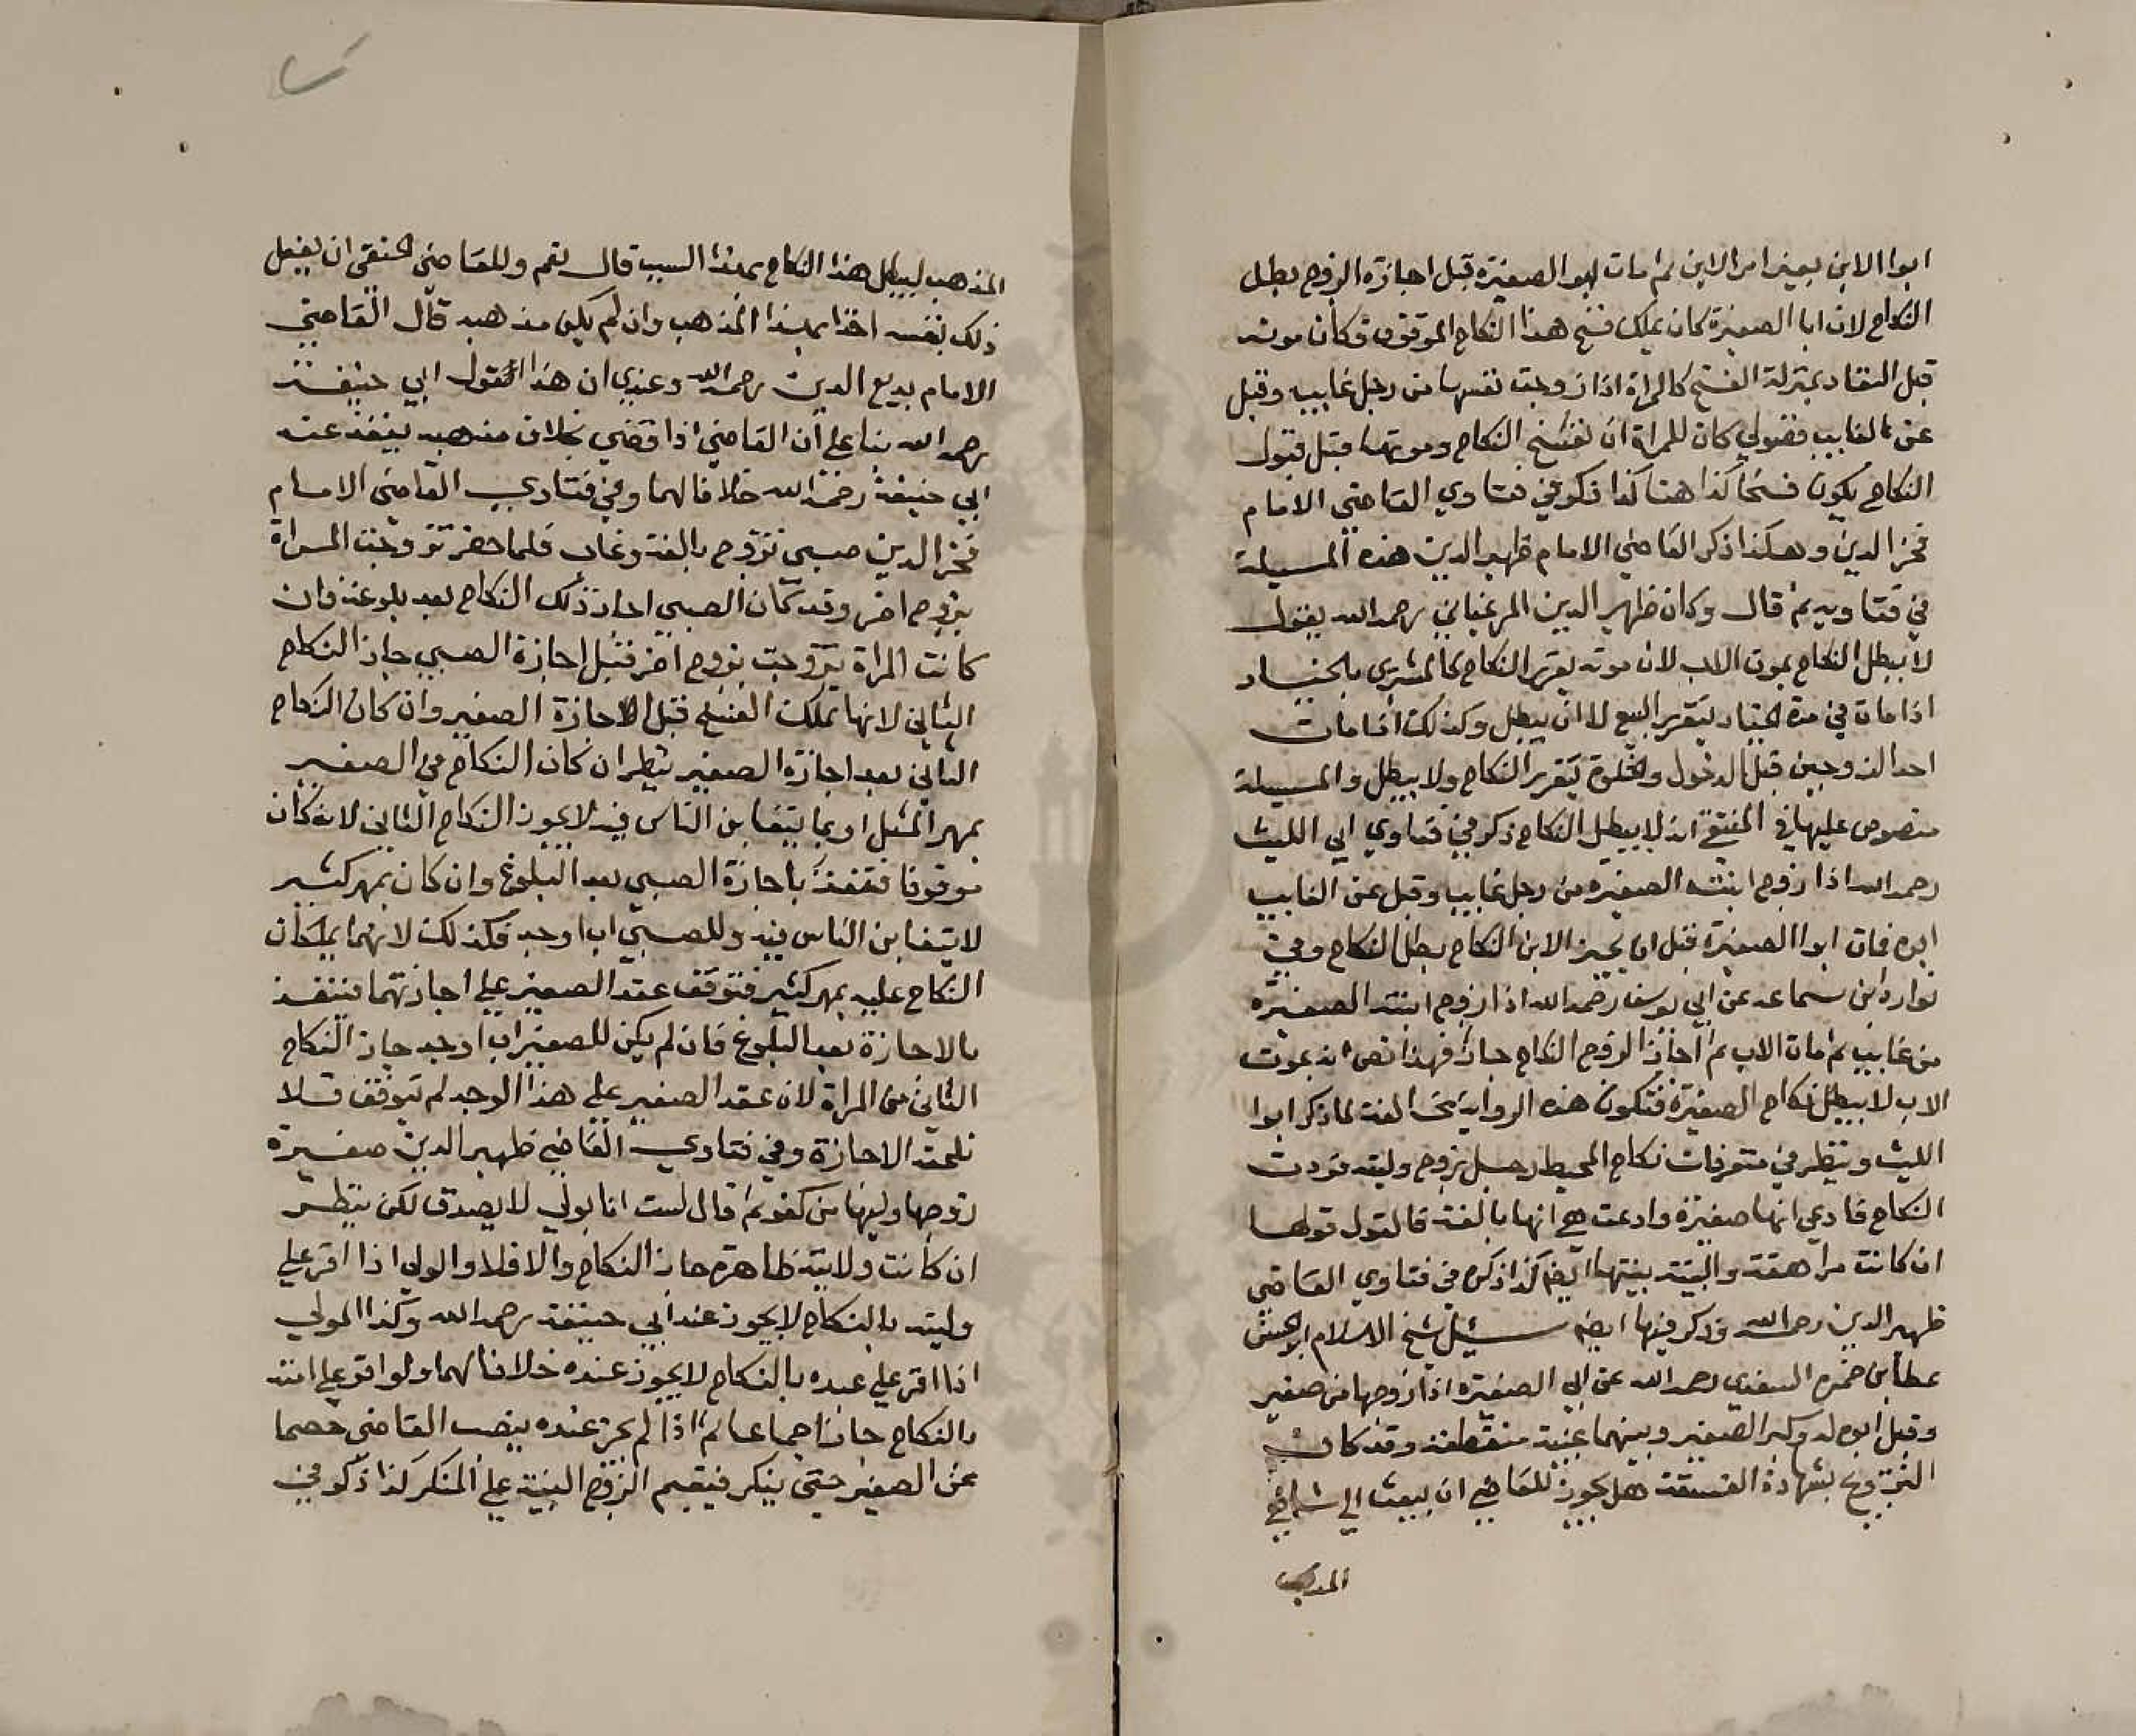 ابوا الابن بغير امر الابن ثم مات ابو الصغيرة قبل اجازة الزوج بطل
النكاح لان ابا الصغيرة كان يملك فسخ هذا النكاح الموقوف فكان موته
قبل النفاد بمنزلة الفسخ كالمراة اذا زوجت نفسها من رجل غايب وقبل
عن الغايب فضولي كان للمراة ان تفسخ النكاح وموتها قبل قبول
النكاح يكون فسخا كذا هنا كذا ذكر في فتاوي القاضي الامام
فخر الدين وهكذا ذكر القاضي الامام ظهير الدين هذه المسيلة
في فتاويه ثم قال وكان ظهير الدين المرغيناني رحمه الله يقول
لا يبطل النكاح بموت الاب لان موته يقرر النكاح كالمشتري بالخيار
اذا مات في مدة الخيار يتقرر البيع لا ان يبطل وكذلك اذا مات
احد الزوجين قبل الدخول والخلوة يتقرر النكاح ولا يبطل والمسيلة
منصوص عليها في المنتقي انه لا يبطل النكاح ذكر في فتاوي ابي الليث
رحمه الله اذا زوج ابنته الصغيرة من رجل غايب وقبل عن الغايب
ابوه فمات ابوا الصغيرة قبل ان يجيز الابن النكاح بطل النكاح وفي
نوادر ابن سماعه عن ابي يوسف رحمه الله اذا زوج ابنته الصغيرة
من غايب ثم مات الاب ثم اجاز الزوج النكاح جاز فهذا نص انه بموت
الاب لا يبطل نكاح الصغيرة فتكون هذه الرواية مخالفة لما ذكر ابوا
الليث وينظر في متفرقات نكاح المحيط رجل زوج وليته فردت
النكاح فادعي انها صغيرة وادعت هي انها بالغة فالقول قولها
ان كانت مراهقة والبينة بينتها ايضا كذا ذكره في فتاوي القاضي
ظهير الدين رحمه الله وذكر فيها ايضا سئيل شيخ الاسلام ابو الحسن
عطا بن حمزه السغدي رحمه الله عن ابي الصغيرة اذا زوجها من صغير
وقبل ابوه له وكبر الصغير وبينهما غيبة منقطعة وقد كان
التزويج بشهادة الفسقة هل يجوز للقاضي ان يبعث الي شافعي
المذهب
المذهب ليبطل هذا النكاح بهذا السبب قال نعم وللقاضي الحنفي ان يفعل
ذلك بنفسه اخذا بهذا المذهب وان لم يكن مذهبه قال القاضي
الامام بديع الدين رحمه الله وعندي ان هذا القول ابي حنيفة
رحمه الله بنا علي ان القاضي اذا قضي بخلاف مذهبه ينفذ عند
ابي حنيفة رحمه الله خلافا لهما وفي فتاوي القاضي الامام
فخر الدين صبي تزوج بالغة وغاب فلما حضر تزوجت المراة
بزوج اخر وقد كان الصبي اجاز ذلك النكاح بعد بلوغه فان
كانت المراة تزوجت بزوج اخر قبل اجازة الصبي جاز النكاح
الثاني لانها تملك الفسخ قبل الاجازة الصغير وان كان النكاح
الثاني بعد اجازة الصغير ينظر ان كان النكاح من الصغير
بمهر المثل او بما يتغابن الناس فيه لا يجوز النكاح الثاني لانه كان
موقوفا فنفذ باجازة الصبي بعد البلوغ وان كان بمهر كثير
لا يتغابن الناس فيه وللصبي اب او جد فكذلك لانهما يملكان
النكاح عليه بمهر كثير فتوقف عقد الصغير علي اجازتهما فينفذ
بالاجازة بعد البلوغ فان لم يكن للصغير اب او جد جاز النكاح
الثاني من المراة لان عقد الصغير علي هذا الوجه لم يتوقف فلا
تلحقه الاجازة وفي فتاوي القاضي ظهير الدين صغيرة
زوجها وليها من كفو ثم قال لست انا بولي لا يصدق لكن ينظر
ان كانت ولايته ظاهرة جاز النكاح والا فلا والولي اذا اقر علي
وليته بالنكاح لا يجوز عند ابي حنيفة رحمه الله وكذا المولي
اذا اقر علي عبده بالنكاح لا يجوز عنده خلافا لهما ولو اقر علي امته
بالنكاح جاز اجماعا ثم اذا لم يجز عنده ينصب القاضي خصما
عن الصغير حتي ينكر فيقيم الزوج البينة علي المنكر كذا ذكر في